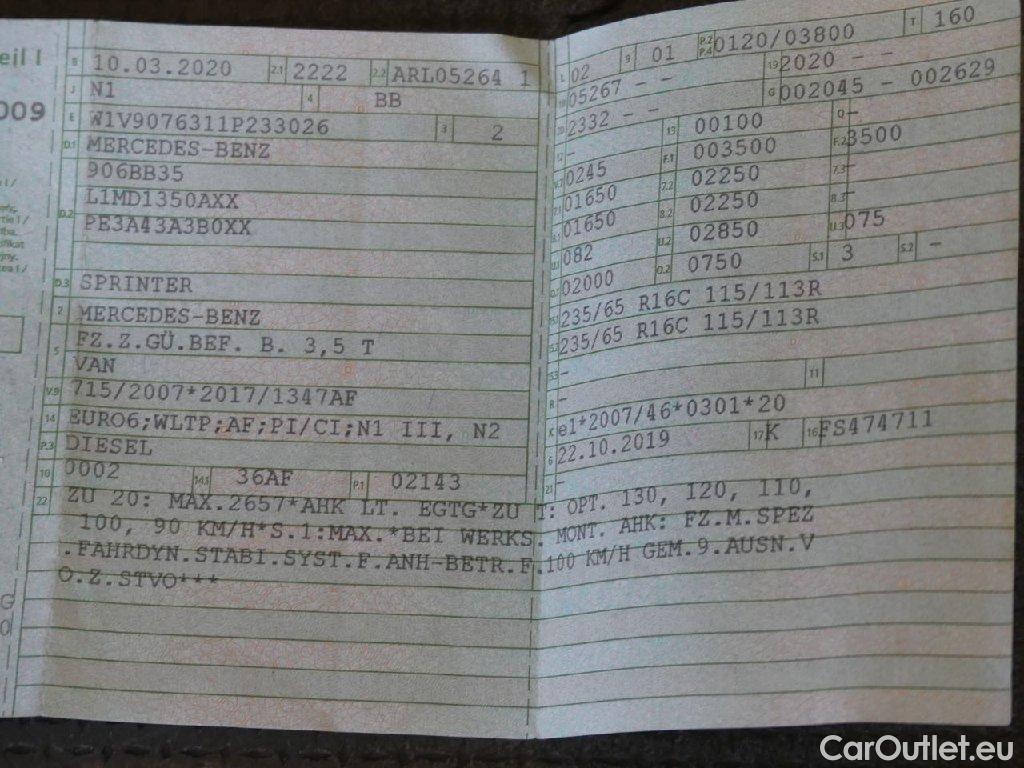 eil I
009
B 10.03.2020 2.1 2222 2.2 ARL05264 1
J N1 4 BB
E W1V9076311P233026 3 2
D.1 MERCEDES-BENZ
906BB35
D.2 L1MD1350AXX
PE3A43A3B0XX
D.3 SPRINTER
2 MERCEDES-BENZ
5 FZ.Z.GÜ.BEF. B. 3,5 T
VAN
V.9 715/2007*2017/1347AF
14 EURO6;WLTP;AF;PI/CI;N1 III, N2
P.3 DIESEL
10 0002 14.1 36AF P.1 02143
L 02 9 01 P.2 P.4 0120/03800 T 160
18 05267 -- 19 2020 --
20 2332 -- G 002045 - 002629
12 - 13 00100 Q -
V.7 0245 F.1 003500 F.2 3500
7.1 01650 7.2 02250 7.3 -
8.1 01650 8.2 02250 8.3 -
U.1 082 U.2 02850 U.3 075
O.1 02000 O.2 0750 S.1 3 S.2 -
15.1 235/65 R16C 115/113R
15.2 235/65 R16C 115/113R
15.3 -
R - 11
K e1*2007/46*0301*20
6 22.10.2019 17 K 16 FS474711
21 -
22 ZU 20: MAX.2657*AHK LT. EGTG*ZU T: OPT. 130, 120, 110,
100, 90 KM/H*S.1:MAX.*BEI WERKS. MONT. AHK: FZ.M.SPEZ
.FAHRDYN.STABI.SYST.F.ANH-BETR.F.100 KM/H GEM.9.AUSN.V
O.Z.STVO***
CarOutlet.eu